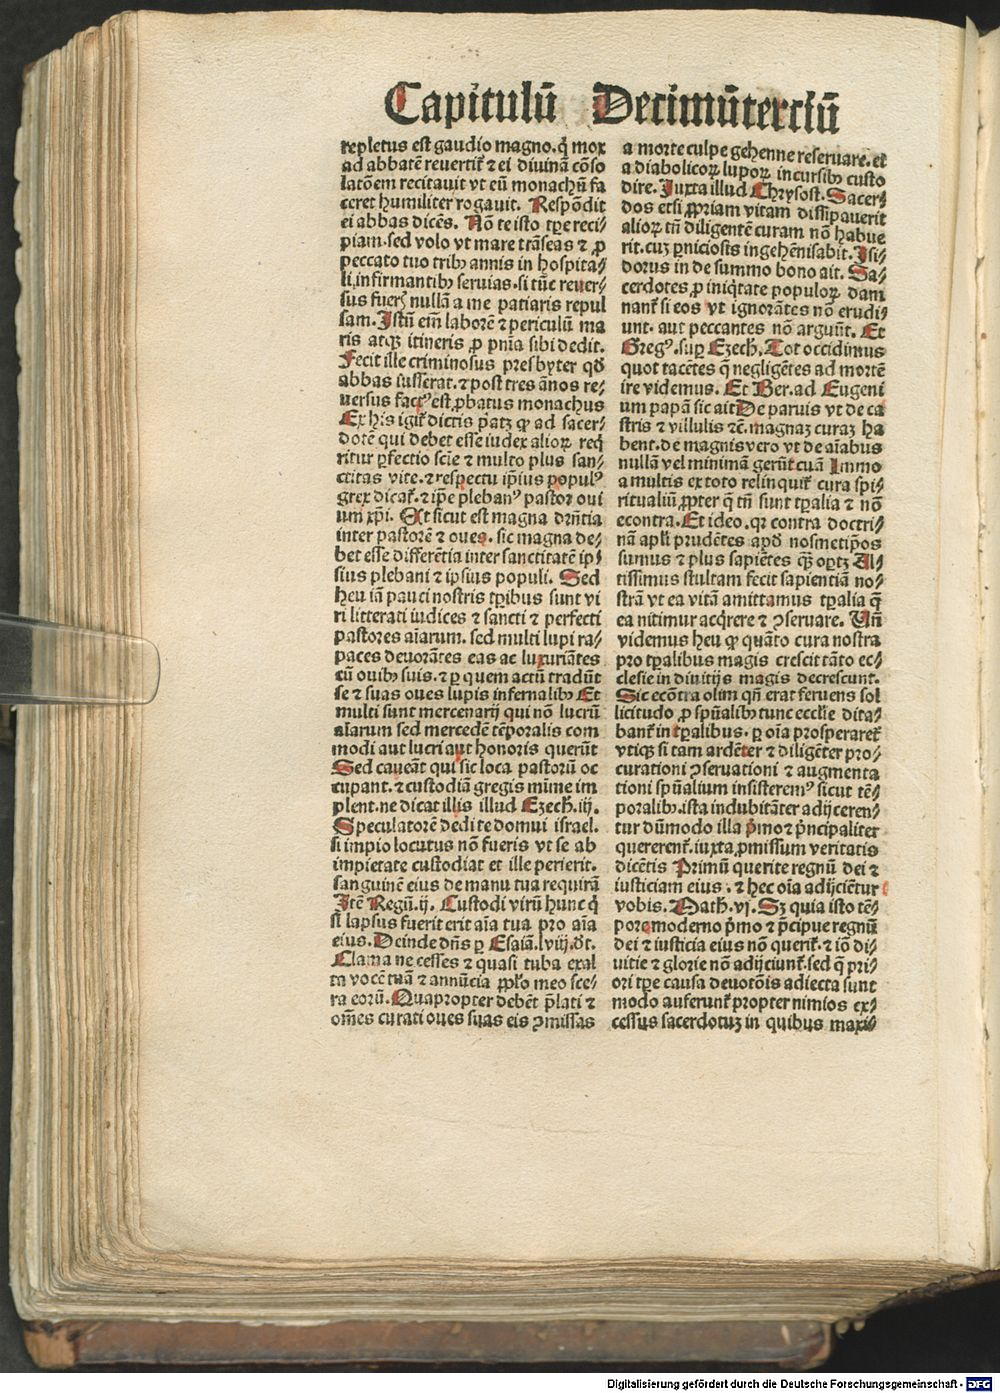 Capitulū Decimūterciū
repletus est gaudio magno. q̄ mox
ad abbatē revertit᷑ ⁊ ei divinā cōso
latōem recitauit vt eū monachū fa
ceret humiliter rogauit. Respōdit
ei abbas dicēs. Nō te isto tp̄e reci⸗
piam. sed volo vt mare trāseas ⁊ ꝓ
peccato tuo tribꝫ annis in hospita⸗
li infirmantibꝫ seruias. si tūc reuer⸗
sus fuerꝭ nullā a me patiaris repul
sam. Istū em̄ laborē ⁊ periculū ma
ris atqꝫ itineris ꝓ pn̄ia sibi dedit.
Fecit ille criminosus presbyter qd̄
abbas iusserat. ⁊ post tres ānos re⸗
uersus factꝰ est ꝓbatus monachus
Ex his igit᷑ dictis pꝫatꝫ ꝙ ad sacer⸗
dotē qui debet esse iudex alioꝝ req̄
ritur ꝑfectio scīe ⁊ multo plus san⸗
ctitas vite. ⁊ respectu ip̄ius populꝰ
grex dicat᷑. ⁊ ip̄e plebanꝰ pastor oui
um xp̄i. Et sicut est magna dr̄ntia
inter pastorē ⁊ oues. sic magna de⸗
bet esse differētia inter sanctitatē ip⸗
sius plebani ⁊ ipsius populi. Sed
heu iā pauci nostris tp̄ibus sunt vi
ri litterati iudices ⁊ sancti ⁊ perfecti
pastores aīarum. sed multi lupi ra⸗
paces deuorātes eas ac luxuriātes
cū ouibꝫ suis. ⁊ ꝑ quem actū tradūt
se ⁊ suas oues lupis infernalibꝫ Et
multi sunt mercenarij qui nō lucrū
aīarum sed mercedē tēporalis com
modi aut lucri aut honoris querūt
Sed caueāt qui sic loca pastorū oc
cupant. ⁊ custodiā gregis mīme im
plent. ne dicat illis illud Ezech. iij.
Speculatorē dedi te domui israel.
si impio locutus nō fueris vt se ab
impietate custodiat et ille perierit.
sanguinē eius de manu tua requirā
Itē Regū. ij. Custodi virū hunc q̄
si lapsus fuerit erit aīa tua pro aīa
eius. Deinde dn̄s ꝑ Esaiā. lviij. dt̄.
Clama ne cesses ⁊ quasi tuba exal
ta vocē tuā ⁊ annūcia ppl̄o meo sce⸗
ra eorū. Quapropter debēt p̄lati ⁊
om̄es curati oues suas eis ꝯmissas
a morte culpe gehenne reseruare. et
a diabolicoꝝ lupoꝝ incursibꝫ custo
dire. Iuxta illud Chrysost. Sacer⸗
dos etsi ꝓpriam vitam dissipauerit
alioꝝ tn̄ diligentē curam nō habue
rit. cuꝫ ꝑniciosis in gehēnis abit. Isi⸗
dorus in de summo bono ait. Sa⸗
cerdotes ꝓ iniq̇tate populoꝝ dam
nant᷑ si eos vt ignorātes nō erudi⸗
unt. aut peccantes nō arguūt. Et
Gregꝰ. suꝑ Ezech. Tot occidimus
quot tacētes q̄ negligētes ad mortē
ire videmus. Et Ber. ad Eugeni
um papā sic ait De paruis vt de ca
stris ⁊ villulis ⁊c̄. magnaꝫ curaꝫ ha
bent. de magnis vero vt de aīabus
nullā vel minimā gerūt curā Immo
a multis ex toto relinquit᷑ cura spi⸗
ritualiū ꝓpter q̄ tn̄ sunt tp̄alia ⁊ nō
econtra. Et ideo. qꝛ contra doctri⸗
nā apl̄i prudētes apd̄ nosmetip̄os
sumus ⁊ plus sapiētes qꝫ̄ oꝑtꝫ Al⸗
tissimus stultam fecit sapientiā no⸗
strā vt ea vitā amittamus tp̄alia q̄
ea nitimur acq̇rere ⁊ ꝯseruare. Vn̄
videmus heu ꝙ quāto cura nostra
pro tp̄alibus magis crescit tāto ec⸗
clesie in diuitijs magis decrescunt.
Sic ecōtra olim qn̄ erat feruens sol
licitudo ꝓ spūalibꝫ tunc eccl̄ie dita⸗
bant᷑ in tp̄alibus. ꝑ oīa prosperaret᷑
vtiqꝫ si tam ardēter ⁊ diligēter pro⸗
curationi ꝯseruationi ⁊ augmenta
tioni spūalium insisteremꝰ sicut tē⸗
poralibꝫ. ista indubitāter adijceren⸗
tur dūmodo illa p̄mo ⁊ p̄ncipaliter
quererent᷑. iuxta ꝓmissum veritatis
dicētis Primū querite regnū dei ⁊
iusticiam eius. ⁊ hec oīa adijciētur
vobis. Math. vj. Sꝫ quia isto tē⸗
pore moderno p̄mo ⁊ p̄ncipue regnū
dei ⁊ iusticia eius nō querit᷑. ⁊ iō di⸗
uitie ⁊ glorie nō adijciunt᷑. sed q̄ pri⸗
ori tp̄e causa deuotōis adiecta sunt
modo auferunt᷑ propter nimios ex⸗
cessus sacerdotuꝫ in quibus maxi⸗
Digitalisierung gefördert durch die Deutsche Forschungsgemeinschaft - DFG